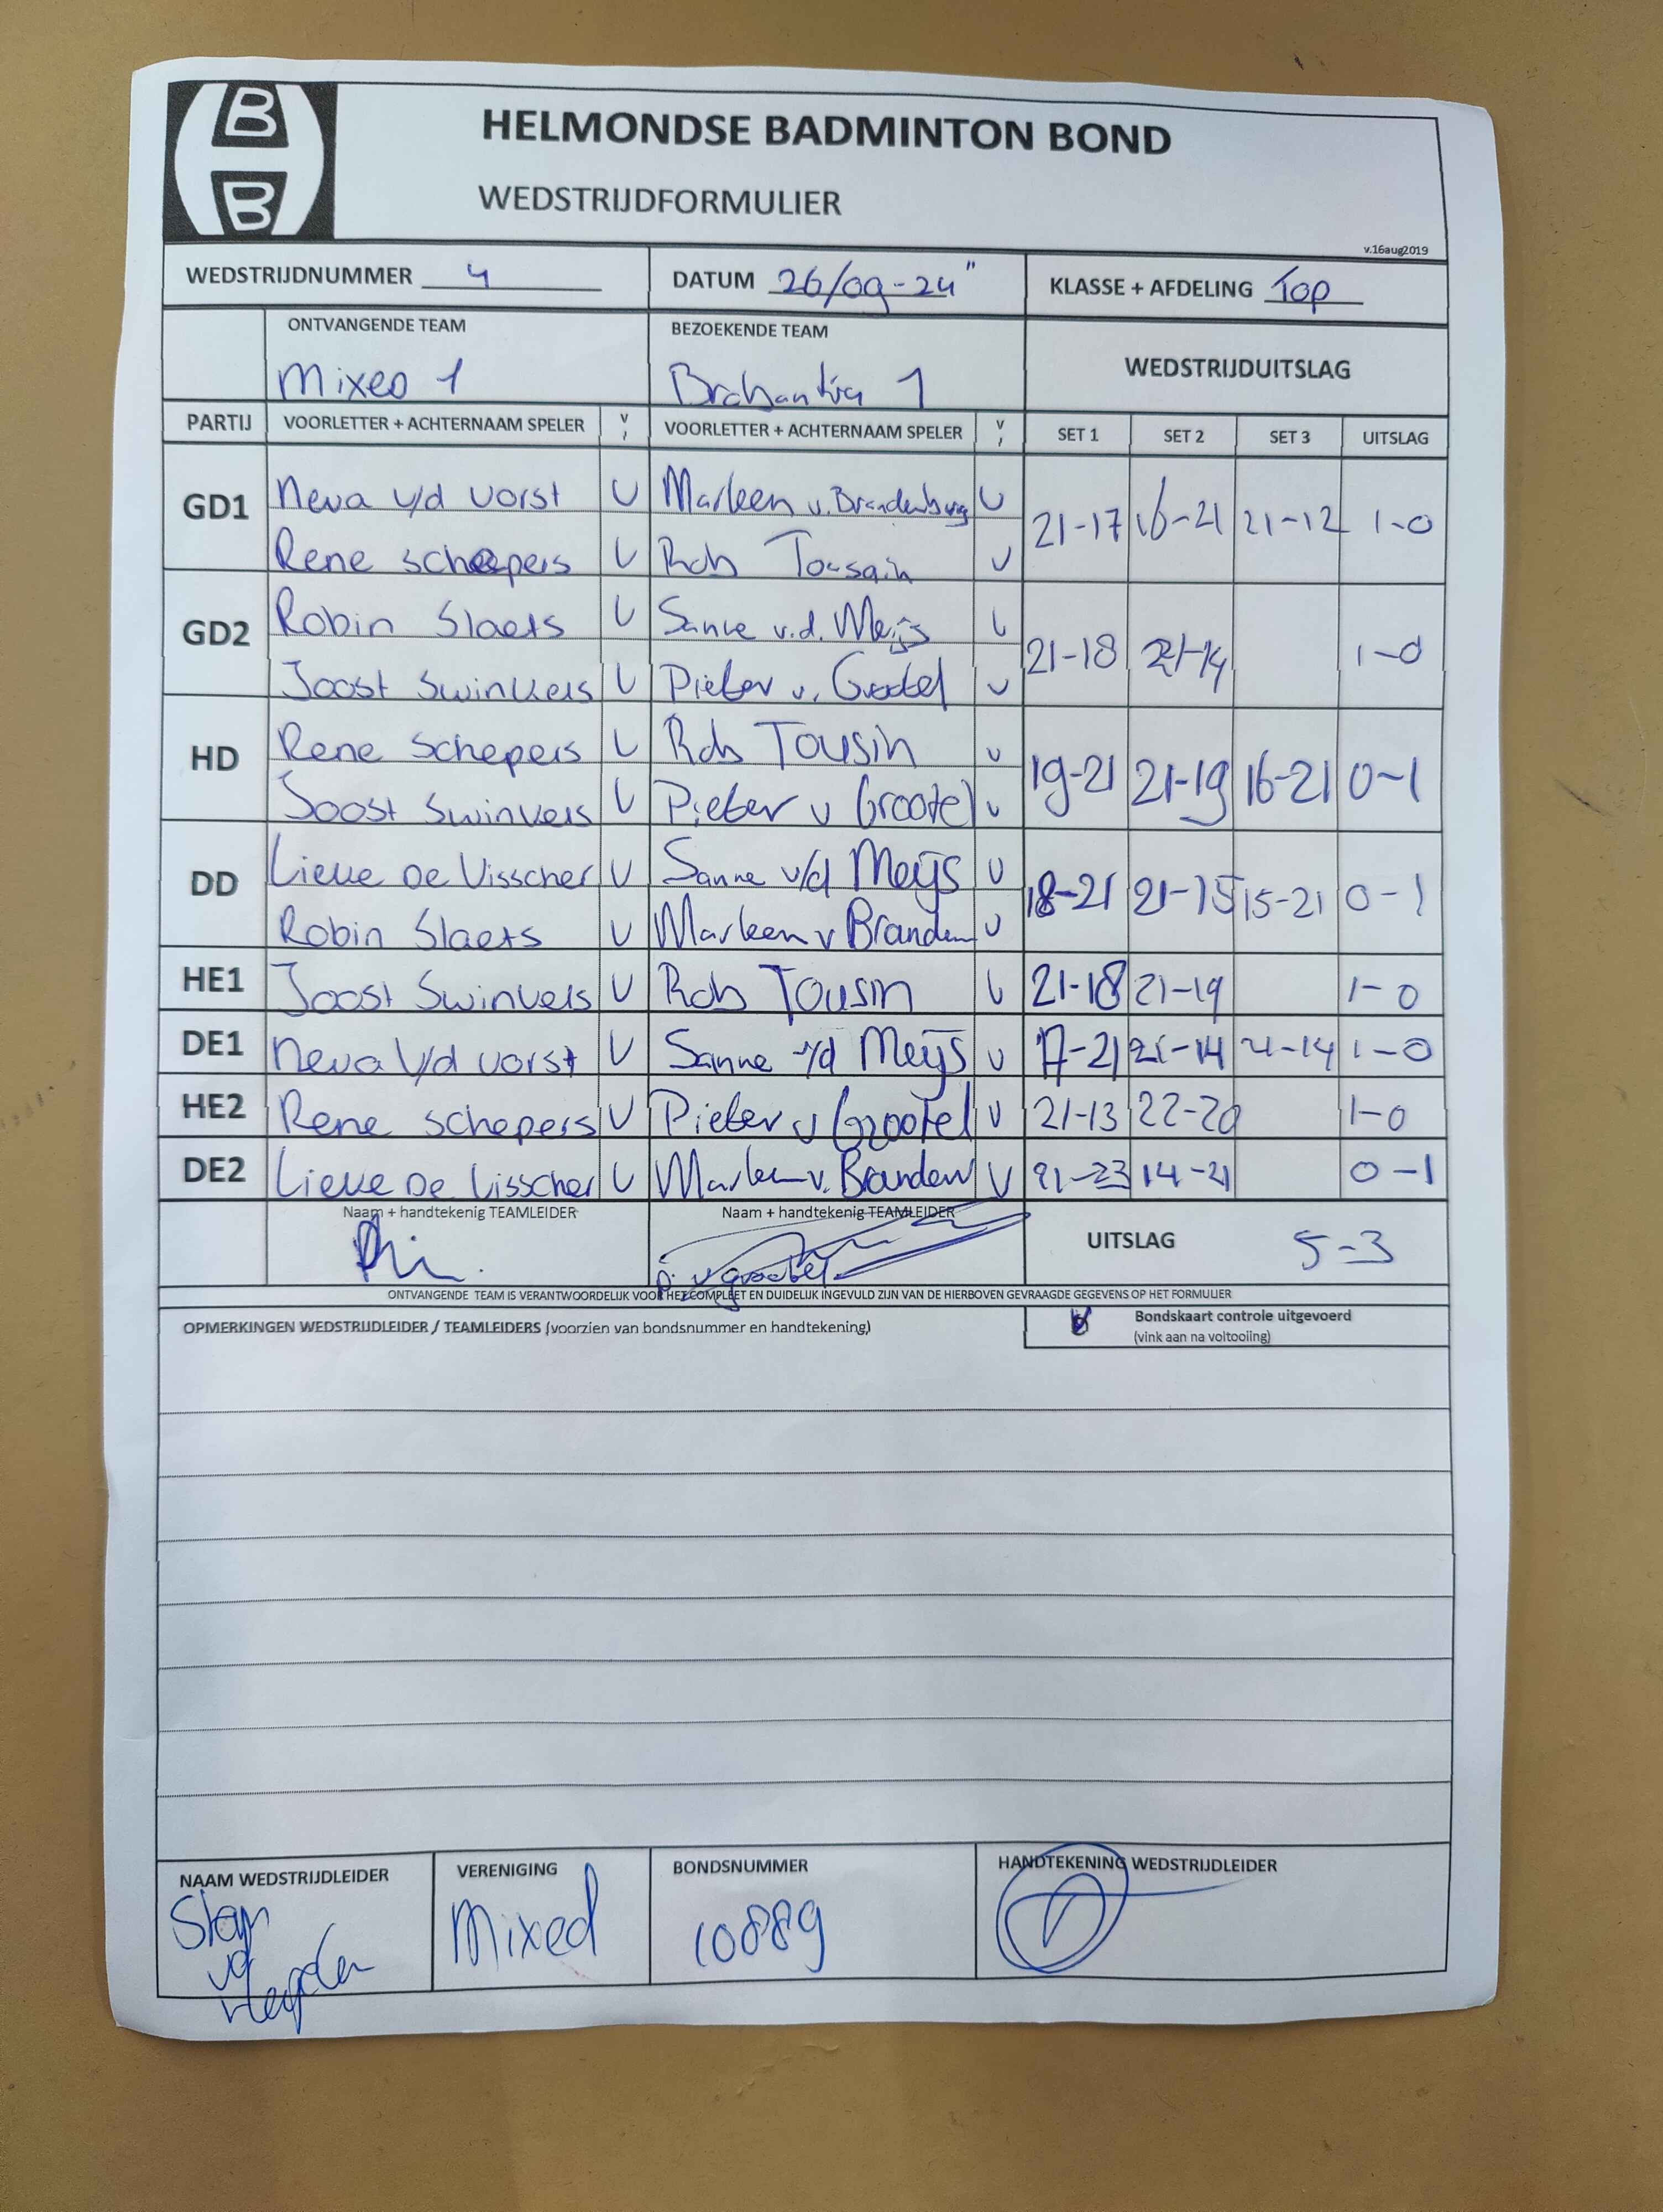 B
B
HELMONDSE BADMINTON BOND
WEDSTRIJDFORMULIER
v.16aug2019
WEDSTRIJDNUMMER 4 DATUM 26/09-24" KLASSE + AFDELING Top
ONTVANGENDE TEAM BEZOEKENDE TEAM WEDSTRIJDUITSLAG
Mixed 1 Brabantia 1
PARTIJ VOORLETTER + ACHTERNAAM SPELER V / VOORLETTER + ACHTERNAAM SPELER V / SET 1 SET 2 SET 3 UITSLAG
GD1 Neva v/d Vorst V Marleen v. Brandenburg V 21-17 16-21 21-12 1-0
Rene Scheepers V Rob Tousain V
GD2 Robin Slaets V Sanne v.d. Meijs V 21-18 21-14 1-0
Joost Swinkels V Pieter v. Grootel V
HD Rene Schepers V Rob Tousin V 19-21 21-19 16-21 0-1
Joost Swinkels V Pieter v Grootel V
DD Lieve De Visscher V Sanne v/d Meijs V 18-21 21-15 15-21 0-1
Robin Slaets V Marleen v Branden V
HE1 Joost Swinkels V Rob Tousin V 21-18 21-19 1-0
DE1 Neva V/d Vorst V Sanne v/d Meijs V 17-21 21-14 21-14 1-0
HE2 Rene Schepers V Pieter v Grootel V 21-13 22-20 1-0
DE2 Lieve De Visscher V Marleen v. Branden V 21-23 14-21 0-1
Naam + handtekenig TEAMLEIDER Naam + handtekenig TEAMLEIDER UITSLAG 5-3
p. v grootel
ONTVANGENDE TEAM IS VERANTWOORDELIJK VOOR HET COMPLEET EN DUIDELIJK INGEVULD ZIJN VAN DE HIERBOVEN GEVRAAGDE GEGEVENS OP HET FORMULIER
OPMERKINGEN WEDSTRIJDLEIDER / TEAMLEIDERS (voorzien van bondsnummer en handtekening) Bondskaart controle uitgevoerd
(vink aan na voltooiing)
NAAM WEDSTRIJDLEIDER VERENIGING BONDSNUMMER HANDTEKENING WEDSTRIJDLEIDER
Stan Mixed 10889
vd
Heyden